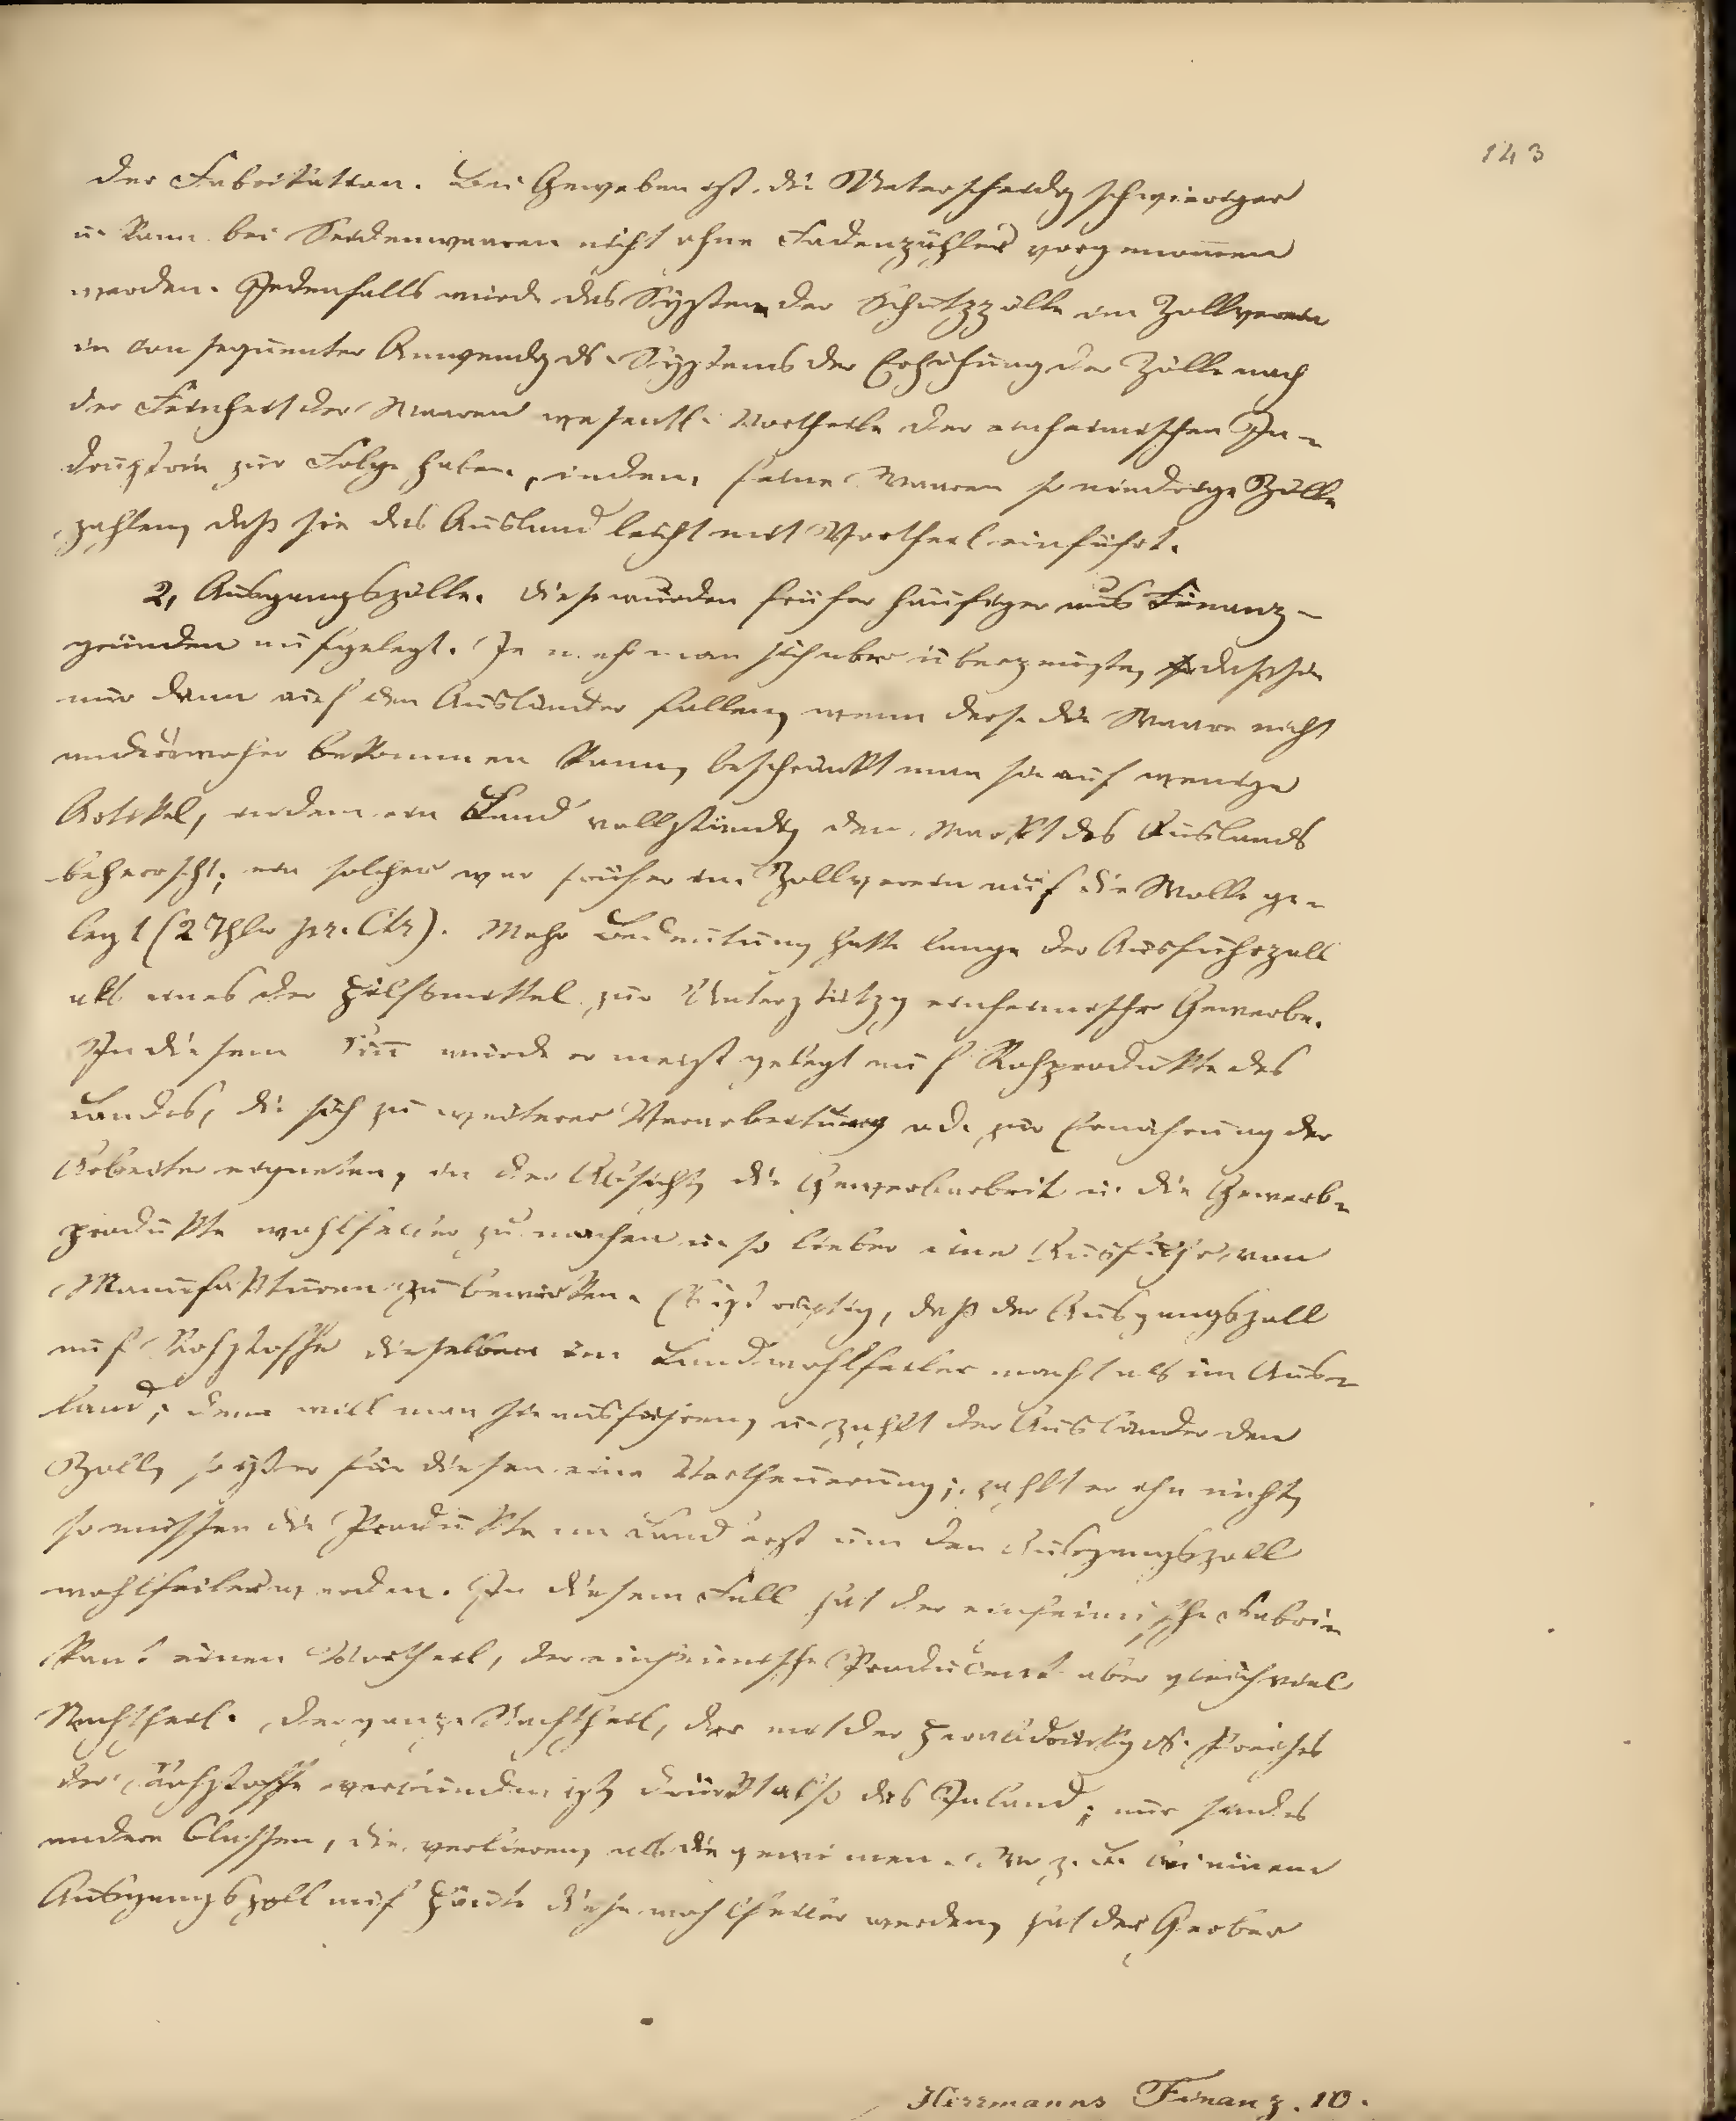 143
der Fabrikation. Bei Geweben ist die Unterscheidg schwieriger
u. kann bei Seidenwaaren nicht ohne Fadenzähler vorgenom̅en
werden. Jedenfalls würde das System der Schutzzölle im Zollverein
in consequenter Anwendg ds. Systems der Erhöhung der Zölle nach
der Feinheit der Waaren wesentl. Vortheile der einheimischen In-
dustrie zur Folge haben, indem feine Waaren so niedrige Zölle
zahlen, daß sie das Ausland leicht mit Vortheil einführt.
2, Ausgangszölle. Diese wurden früher häufiger aus Finanz-
gründen aufgelegt. Je mehr man sich aber überzeugte, daß sie
nur dann auf den Ausländer fallen, wenn ders. die Waare nicht
anderswoher bekommen kann, beschränkt man sie auf wenige
Artikel, in denen ein Land vollständig den Markt des Auslands
beherrscht; ein solcher war früher im Zollverein auf die Wolle ge-
legt (2 Thlr pr. Ctr). Mehr Bedeutung hatte lange der Ausfuhrzoll
als eines der Hülfsmittel zur Unterstützg einheimischer Gewerbe.
In diesem Sin̅ wurde er meist gelegt auf Rohprodukte des
Landes, die sich zu weiterer Verarbeitung od. zur Ernährung der
Arbeiter eigneten, in der Absicht, die Gewerbarbeit u. die Gewerbs-
produkte wohlfeiler zu machen u. so lieber eine Ausfuhr von
Manufakturen zu bewirken. Es ist richtig, daß der Ausgangszoll
auf Rohstoffe dieselben im Land wohlfeiler macht als im Aus-
land; denn will man sie ausführen, u. zahlt der Ausländer den
Zoll, so ist er für diesen eine Vertheuerung; zahlt er ihn nicht,
so müssen die Produkte im Land erst um den Ausgangszoll
wohlfeiler werden. In diesem Fall hat der einheimische Fabri-
kant einen Vortheil, der einheimische Producent aber gleichviel
Nachtheil. Der ganze Nachtheil, der mit der Herabdrückg ds. Preises
der Rohstoffe verbunden ist, drückt also das Inland; nur sind es
andere Classen, die verlieren, als die gewinnen. Wo z. B. bei einem
Ausgangszoll auf Häute diese wohlfeiler werden, hat der Gerber
Herrmanns Finanz. 10.